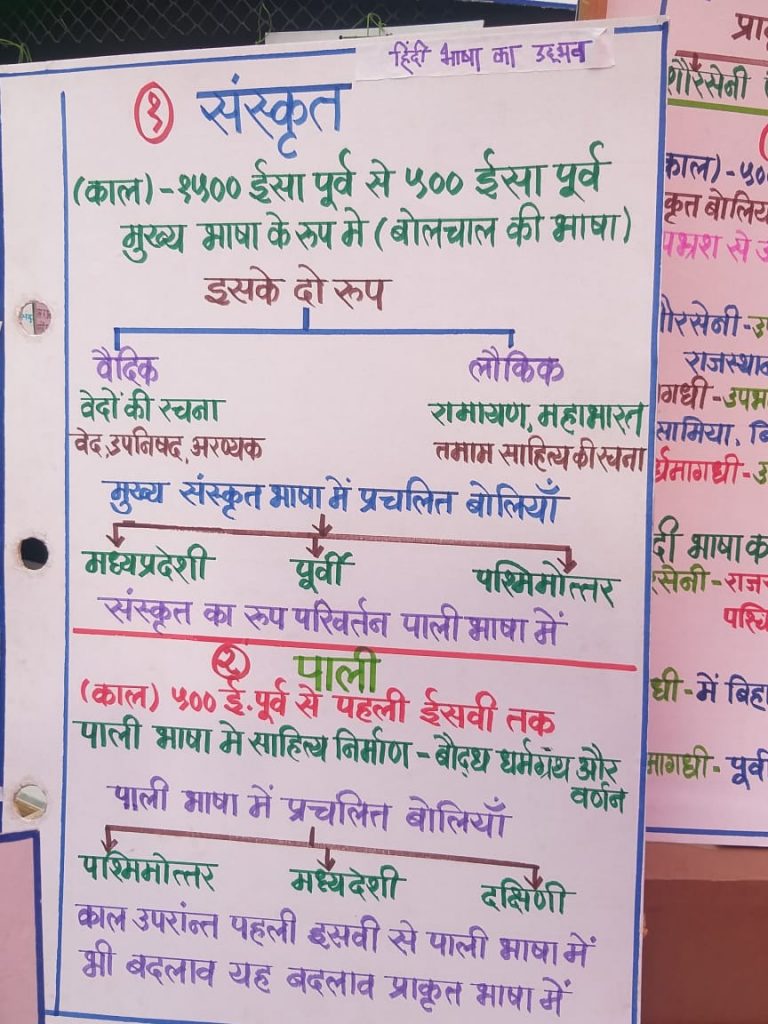 हिंदी भाषा का उद्भव
१ संस्कृत
(काल) - १५०० ईसा पूर्व से ५०० ईसा पूर्व
मुख्य भाषा के रुप मे (बोलचाल की भाषा)
इसके दो रुप
वैदिक लौकिक
वेदों की रचना रामायण, महाभारत
वेद, उपनिषद, अरण्यक तमाम साहित्य की रचना
मुख्य संस्कृत भाषा में प्रचलित बोलियाँ
मध्यप्रदेशी पूर्वी पश्मिमोत्तर
संस्कृत का रुप परिवर्तन पाली भाषा में
२ पाली
(काल) ५०० ई.पूर्व से पहली ईसवी तक
पाली भाषा मे साहित्य निर्माण - बौद्ध धर्मग्रंथ और
वर्णन
पाली भाषा में प्रचलित बोलियाँ
पश्मिमोत्तर मध्यदेशी दक्षिणी
काल उपरांन्त पहली इसवी से पाली भाषा में
भी बदलाव यह बदलाव प्राकृत भाषा में
शौरसेनी
काल) - ५०
कृत बोलिय
पभ्रश से उ
ौरसेनी - उ
राजस्थान
ागधी - उपभ्र
सामिया, बि
र्धमागधी - उ
दी भाषा क
सेनी - राज
पश्चि
धी - में बिहा
मागधी - पूर्वी